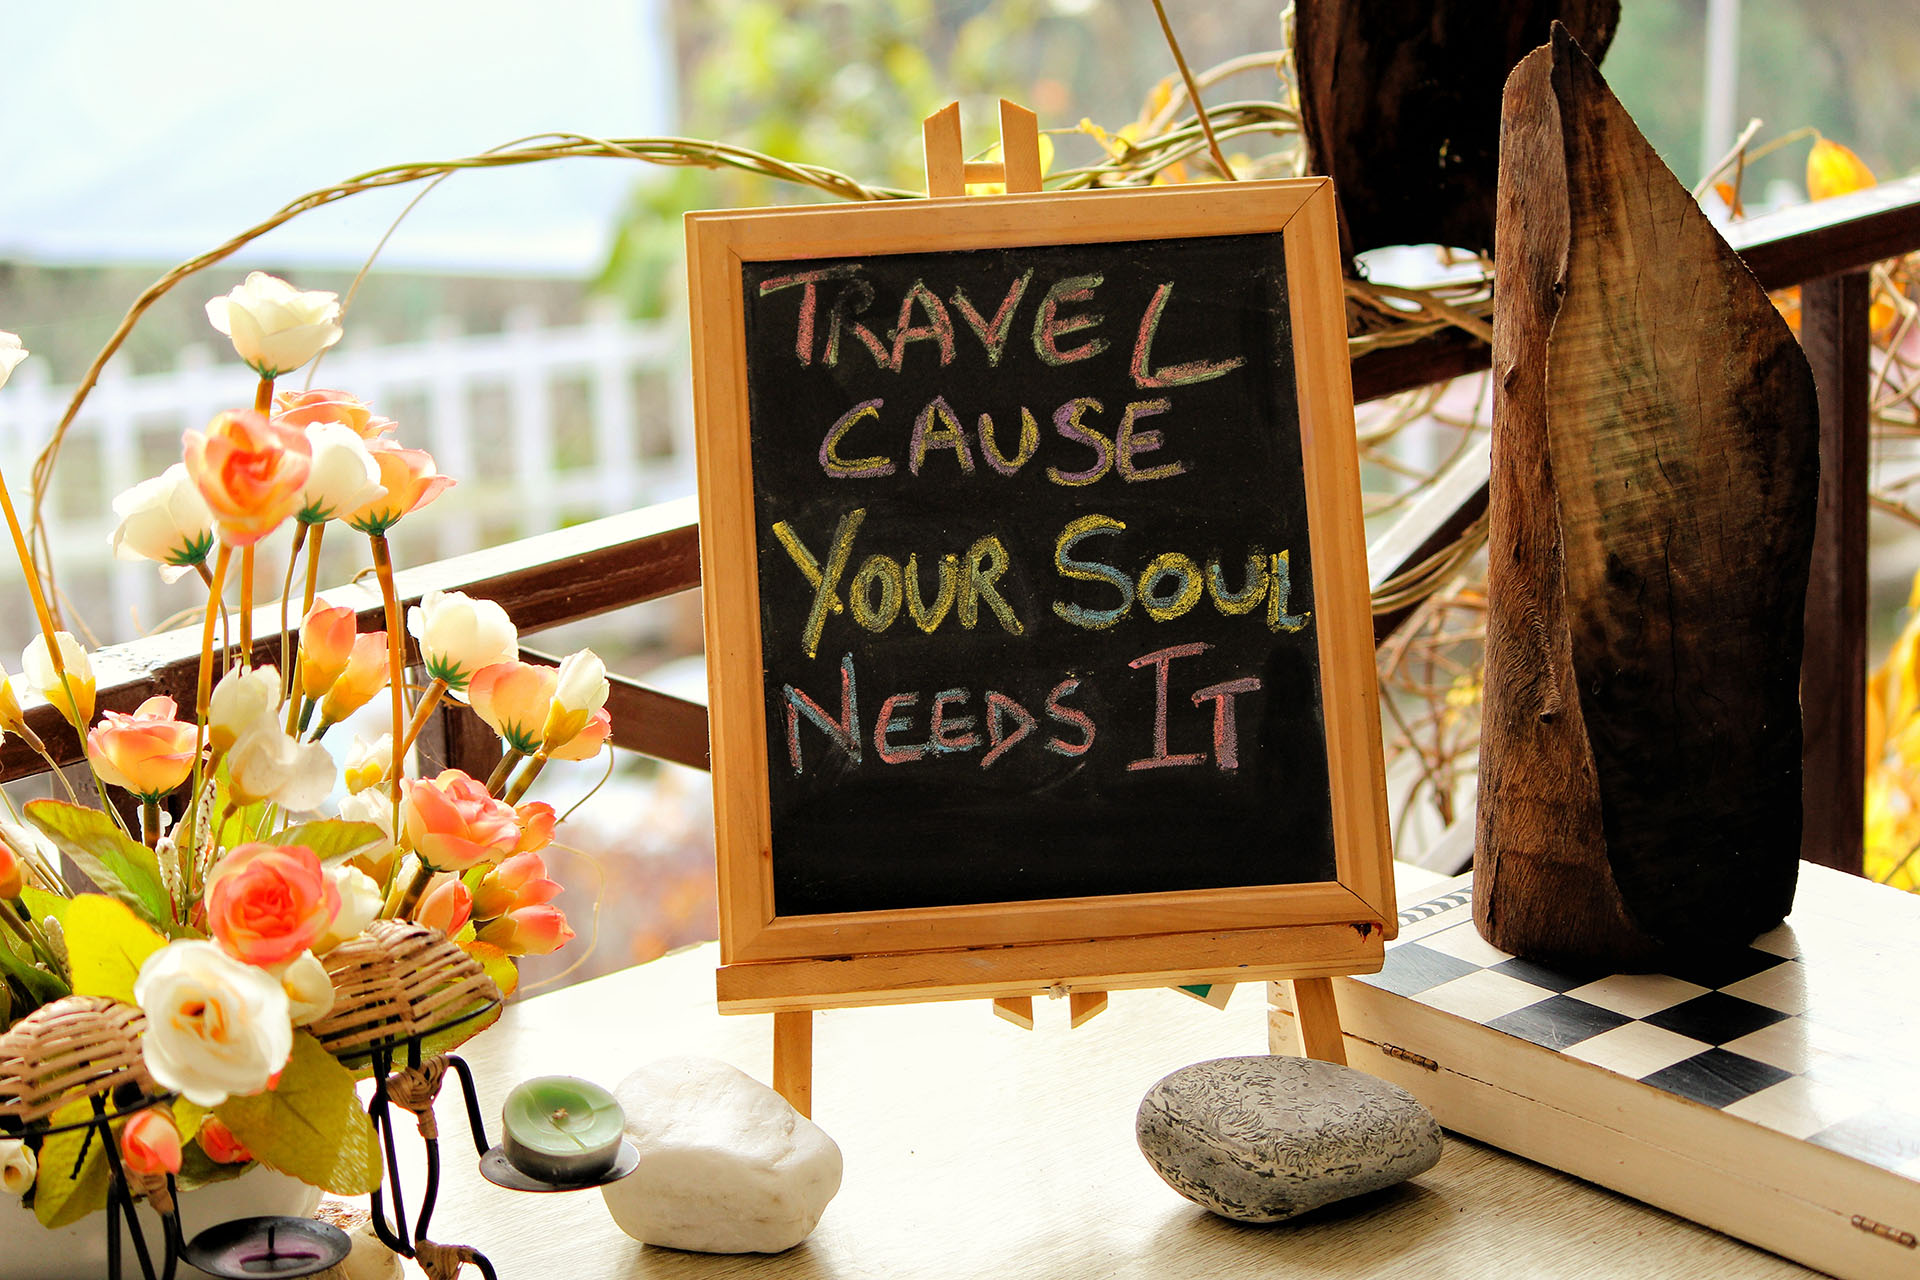 TRAVEL
CAUSE
YOUR SOUL
NEEDS IT